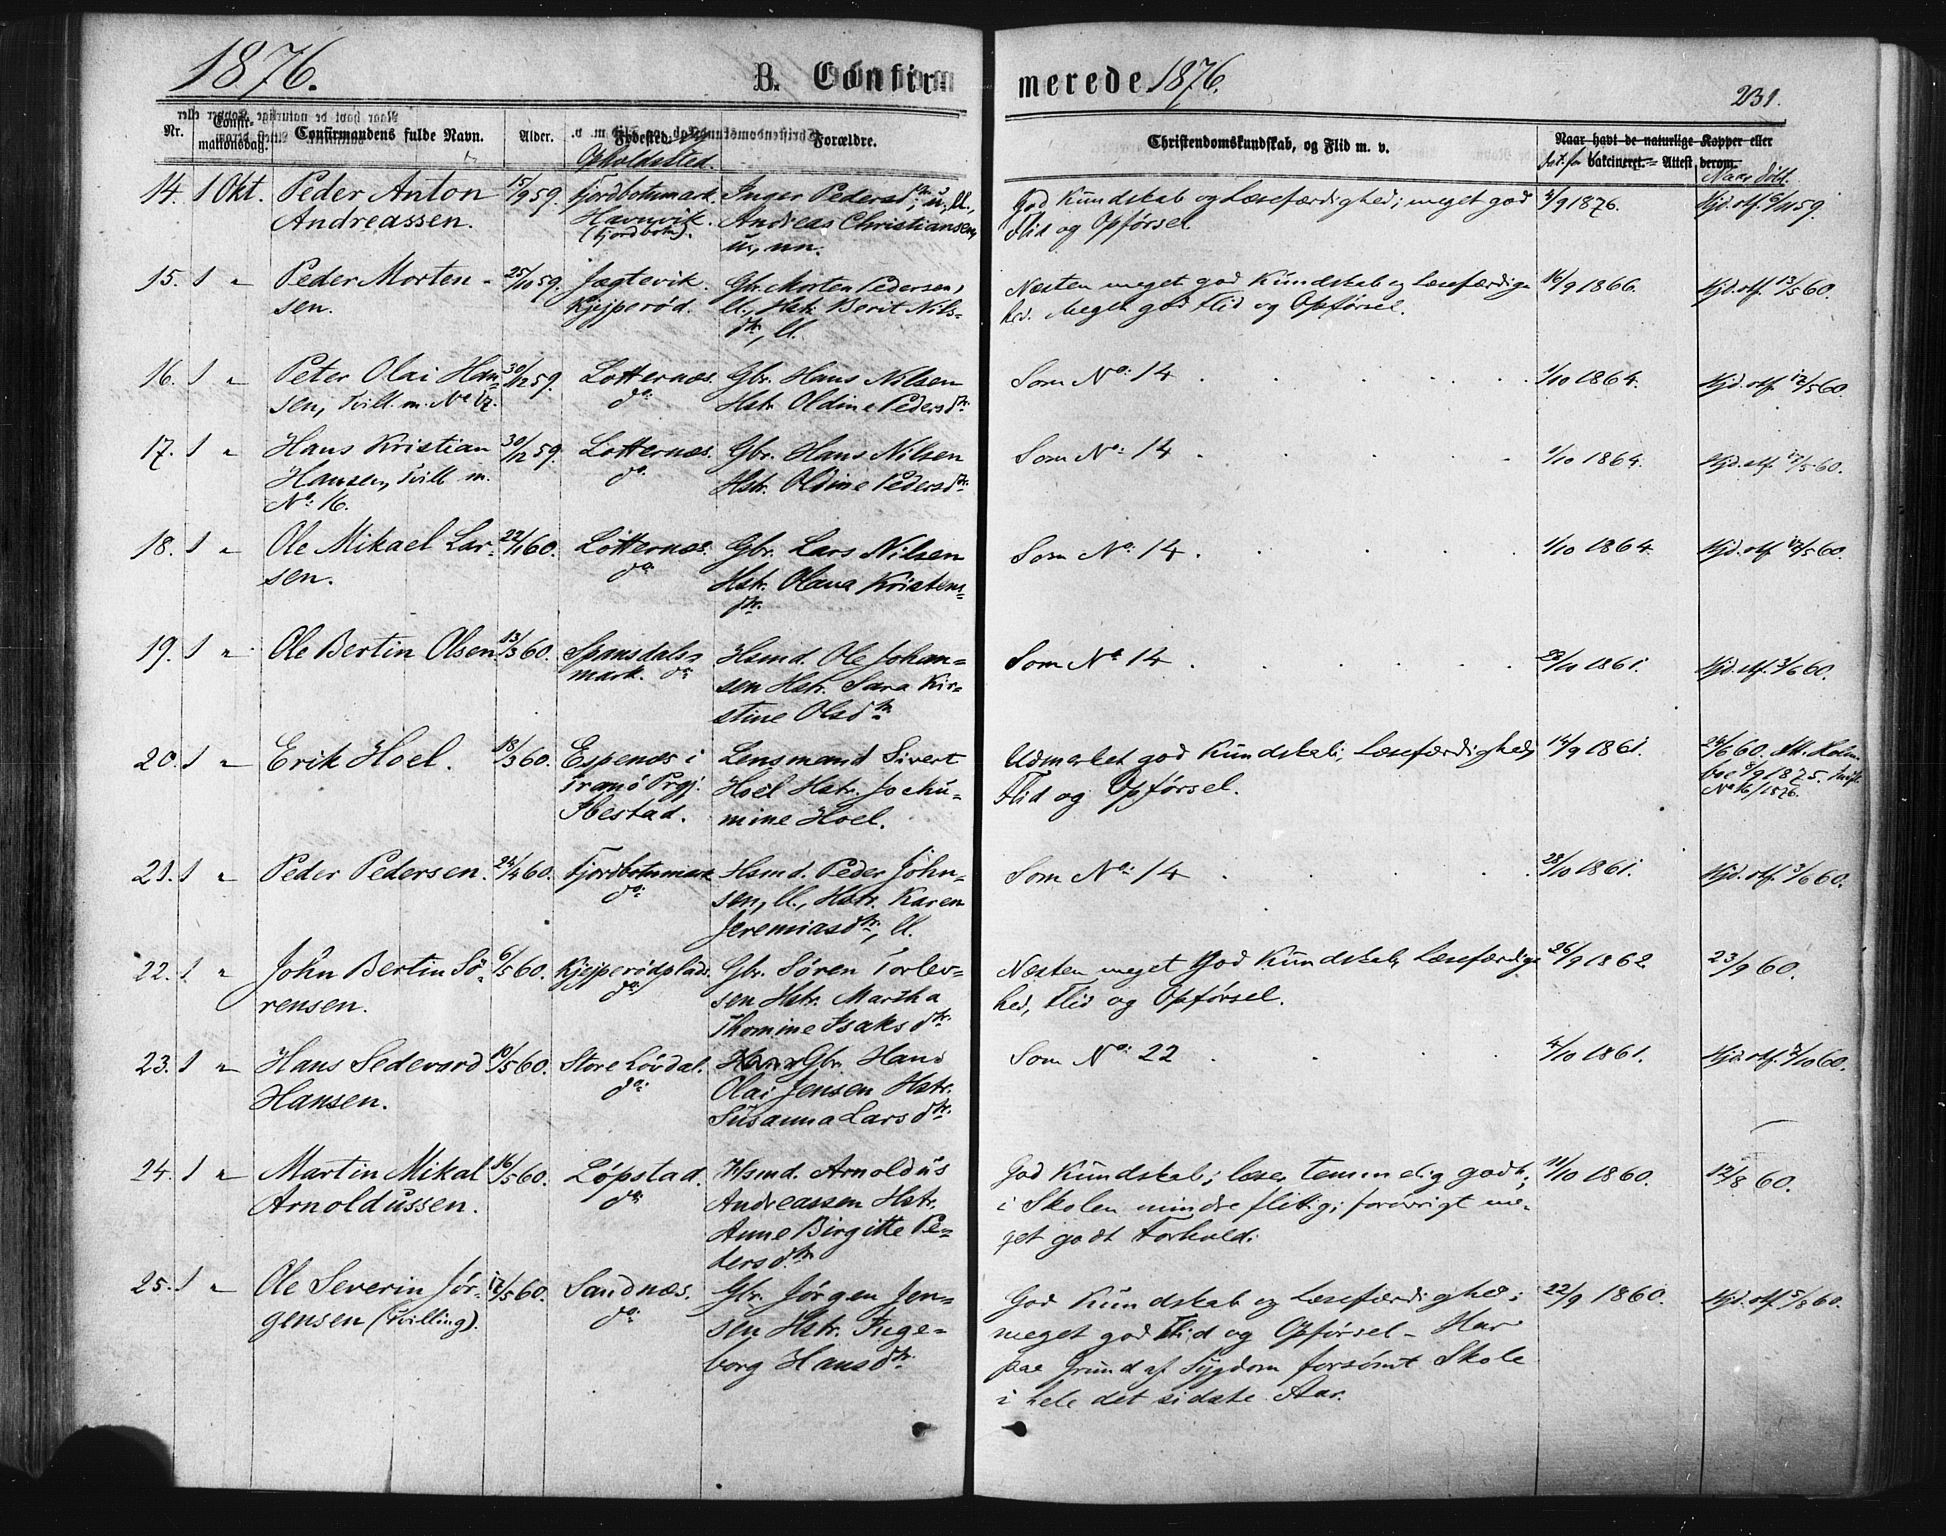 1876.
B. Confir
merede 1876.
231.
Nr.
Confir-
mationsdag.
Confirmandens fulde Navn.
Alder.
Fødested og
Opholdssted.
Forældre.
Christendomskundskab, og Flid m. v.
Naar havt de naturlige Kopper eller
vakcineret. Attest derom.
Naar døbt.
14. 1 Okt. Peder Anton
Andreassen.
15/9 59.
Fjordbotnmark.
Havnvik.
(Fjordbotn).
Inger Pedersdtr., u., ll.,
Andreas Christiansen,
u., nn.
God Kundskab og Læsefærdighed; meget god
Flid og Opførsel.
2/9 1876.
Kjd. stf. 6/11 59.
15. 1 " Peder Morten-
sen.
25/10 59.
Jægtevik.
Kjejperød.
Gbr. Morten Pedersen,
ll., Hstr. Berit Nils-
dtr., ll.
Næsten meget god Kundskab og Læsefærdig-
hed. Meget god Flid og Opførsel.
16/9 1866.
Kjd. stf. 13/5 60.
16. 1 " Peter Olai Han-
sen, Tvill. m. No 17.
30/12 59.
Lotternæs.
do.
Gbr. Hans Nilsen
Hstr. Oldine Pedersdtr.
Som No. 14
1/10 1864.
Kjd. stf. 17/5 60.
17. 1 " Hans Kristian
Hansen, Tvill. m.
No. 16.
30/12 59.
Lotternæs.
do.
Gbr. Hans Nilsen
Hstr. Oldine Pedersdtr.
Som No: 14
1/10 1864.
Kjd. stf. 17/5 60.
18. 1 " Ole Mikael Lar-
sen.
22/1 60.
Lotternæs.
do.
Gbr. Lars Nilsen
Hstr. Olava Kristens-
dtr.
Som No. 14
1/10 1864.
Kjd. stf. 17/5 60.
19. 1 " Ole Bertin Olsen.
13/3 60.
Spansdals-
mark. do.
Hsmd. Ole Johan-
sen Hstr. Sara Kir-
stine Olsdtr.
Som No. 14
1861.
Kjd. stf. 3/6 60.
20. 1 " Erik Hoel.
18/3 60.
Espenæs i
Tranø Prgj.
Ibestad.
Lensmand Sivert
Hoel Hstr. Jochu-
mine Hoel.
Udmærket god Kundskab, Læsefærdighed,
Flid og Opførsel.
14/9 1861.
60. Att. Holm-
boe 8/9 1875.
No 16/1876.
21. 1 " Peder Pedersen.
24/4 60.
Fjordbotnmark
do.
Hsmd. Peder John-
sen, ll., Hstr. Karen
Jeremiasdtr., ll.
Som No: 14
23/10 1861.
Kjd. stf. 3/6 60.
22. 1 " John Bertin Sö-
rensen.
6/5 60.
Kjejperødplads.
do.
Gbr. Sören Torlev-
sen Hstr. Martha
Thomine Isaksdtr.
Næsten meget god Kundskab, Læsefærdig-
hed, Flid og Opførsel.
26/9 1862.
23/9 60.
23. 1 " Hans Sedevard
Hansen.
10/5 60.
Store Lövdal.
do.
Gbr. Hans
Olai Jensen Hstr.
Susanna Larsdtr.
Som No: 22
4/10 1861.
Kjd. stf. 60.
24. 1 " Martin Mikal
Arnoldussen.
16/5 60.
Løpstad.
do.
Hsmd. Arnoldus
Andreassen Hstr.
Anne Birgitte Pe-
dersdtr.
God Kundskab; læser temmelig godt;
i Skolen mindre flittig; forövrigt me-
get godt Forhold.
11/10 1860.
12/8 60.
25. 1 " Ole Severin Jør-
gensen (Tvilling).
17/5 60.
Sandnæs.
do.
Gbr. Jørgen Jen-
sen Hstr. Inge-
borg Hansdtr.
God Kundskab og Læsefærdighed;
meget god Flid og Opførsel – Har
paa Grund af Sygdom forsømt Skole
i hele det sidste Aar.
22/9 1860.
Kjd. stf. 5/8 60.